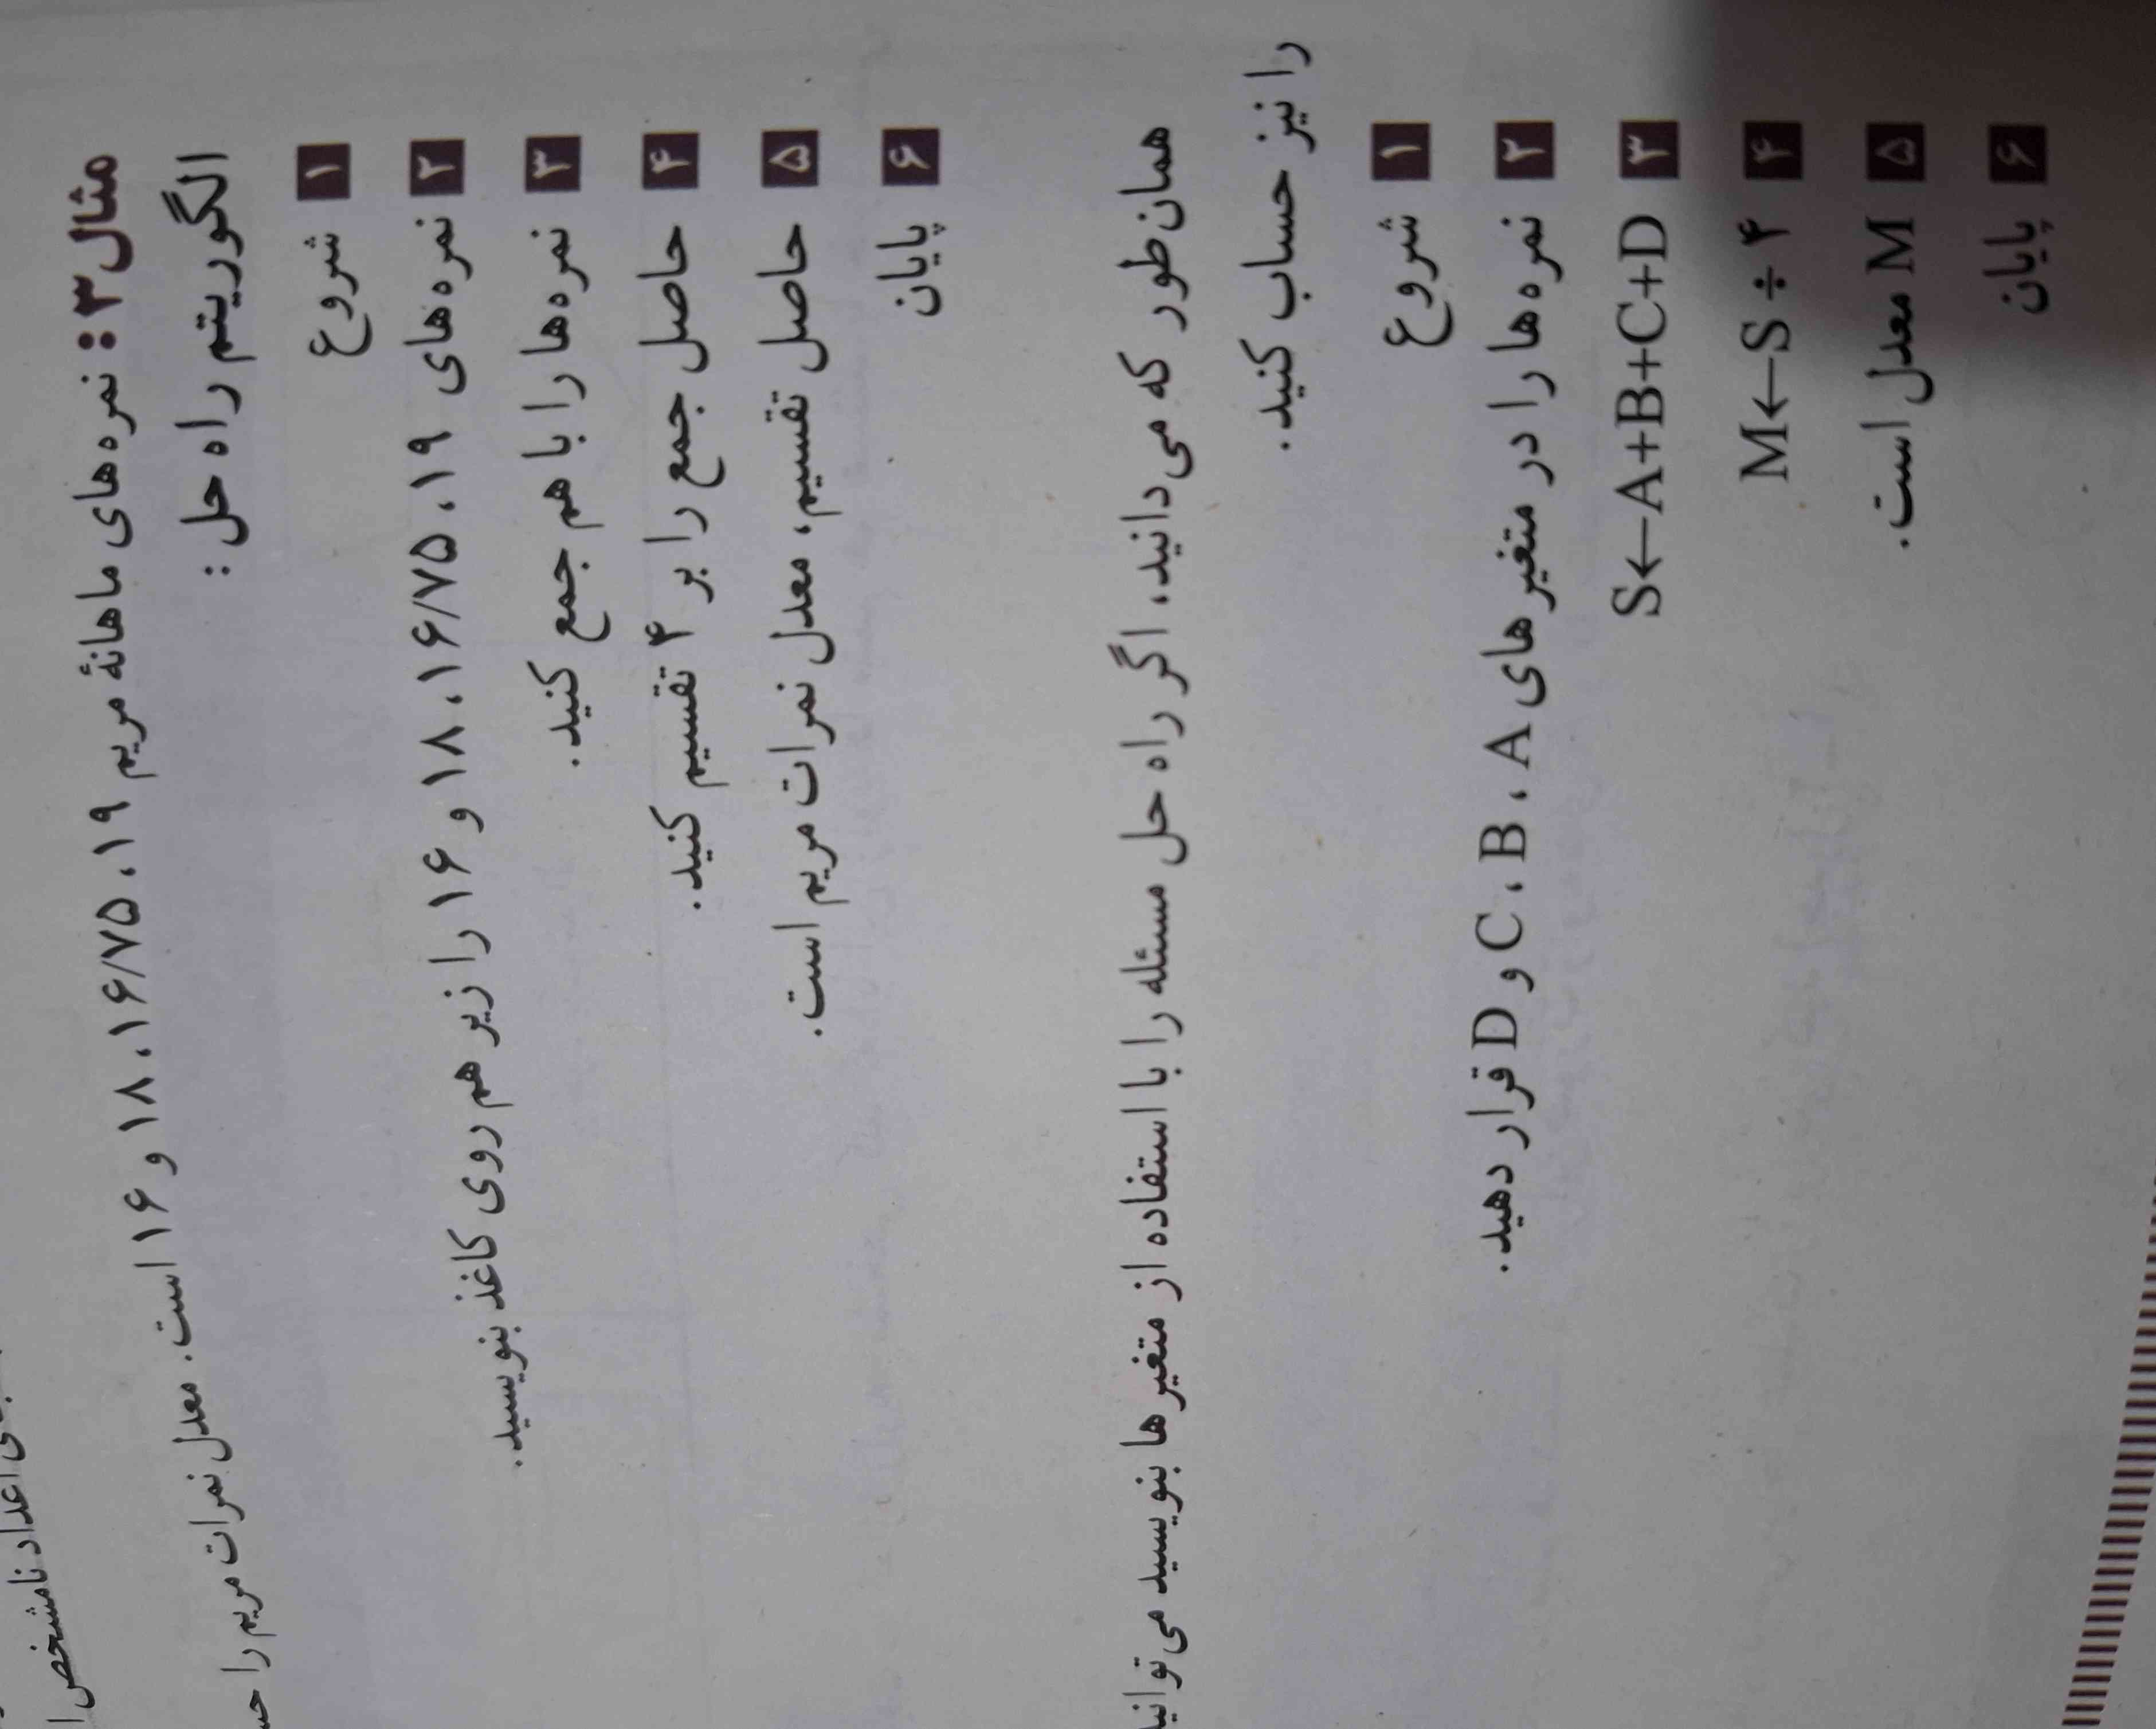 اعداد نامشخص
مثال ۳ : نمره‌های ماهانهٔ مریم ۱۹، ۱۶/۷۵، ۱۸ و ۱۶ است. معدل نمرات مریم را
الگوریتم راه حل :
۱ شروع
۲ نمره‌های ۱۹، ۱۶/۷۵، ۱۸ و ۱۶ را زیر هم روی کاغذ بنویسید.
۳ نمره‌ها را با هم جمع کنید.
۴ حاصل جمع را بر ۴ تقسیم کنید.
۵ حاصل تقسیم، معدل نمرات مریم است.
۶ پایان
همان‌طور که می‌دانید، اگر راه حل مسئله را با استفاده از متغیرها بنویسید
را نیز حساب کنید.
۱ شروع
۲ نمره‌ها را در متغیرهای A ، B ، C و D قرار دهید.
۳ S←A+B+C+D
۴ M←S ÷ ۴
۵ M معدل است.
۶ پایان